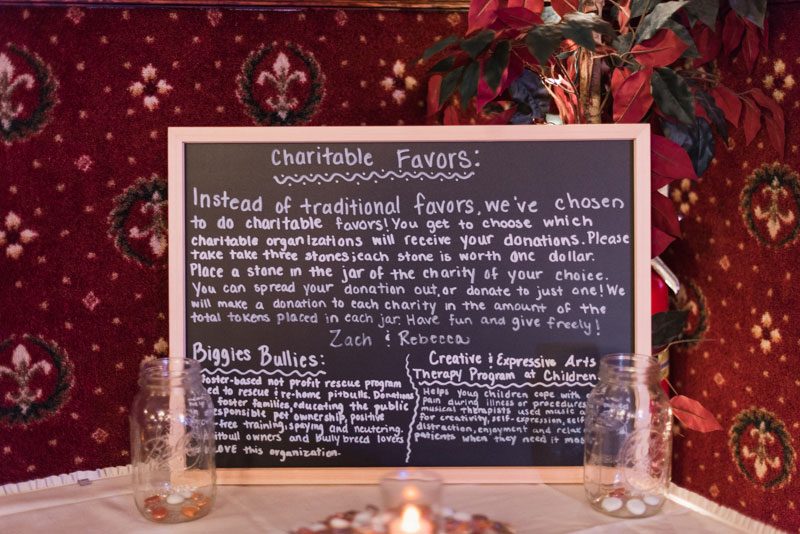 Charitable Favors:
Instead of traditional favors, we've chosen
to do charitable favors! You get to choose which
charitable organizations will receive your donations. Please
take take three stones; each stone is worth one dollar.
Place a stone in the jar of the charity of your choice.
You can spread your donation out, or donate to just one! We
will make a donation to each charity in the amount of the
total tokens placed in each jar. Have fun and give freely!
Zach & Rebecca
Biggies Bullies:
Foster-based not profit rescue program
ed to rescue & re-home pitbulls. Donations
foster families, educating the public
responsible pet ownership, positive
-free training, spaying and neutering.
itbull owners and bully breed lovers
LOVE this organization.
Creative & Expressive Arts
Therapy Program at Children.
Helps young children cope with
pain during illness or procedures
musical therapists used music a
for creativity, self-expression, self
distraction, enjoyment and relax
patients when they need it most